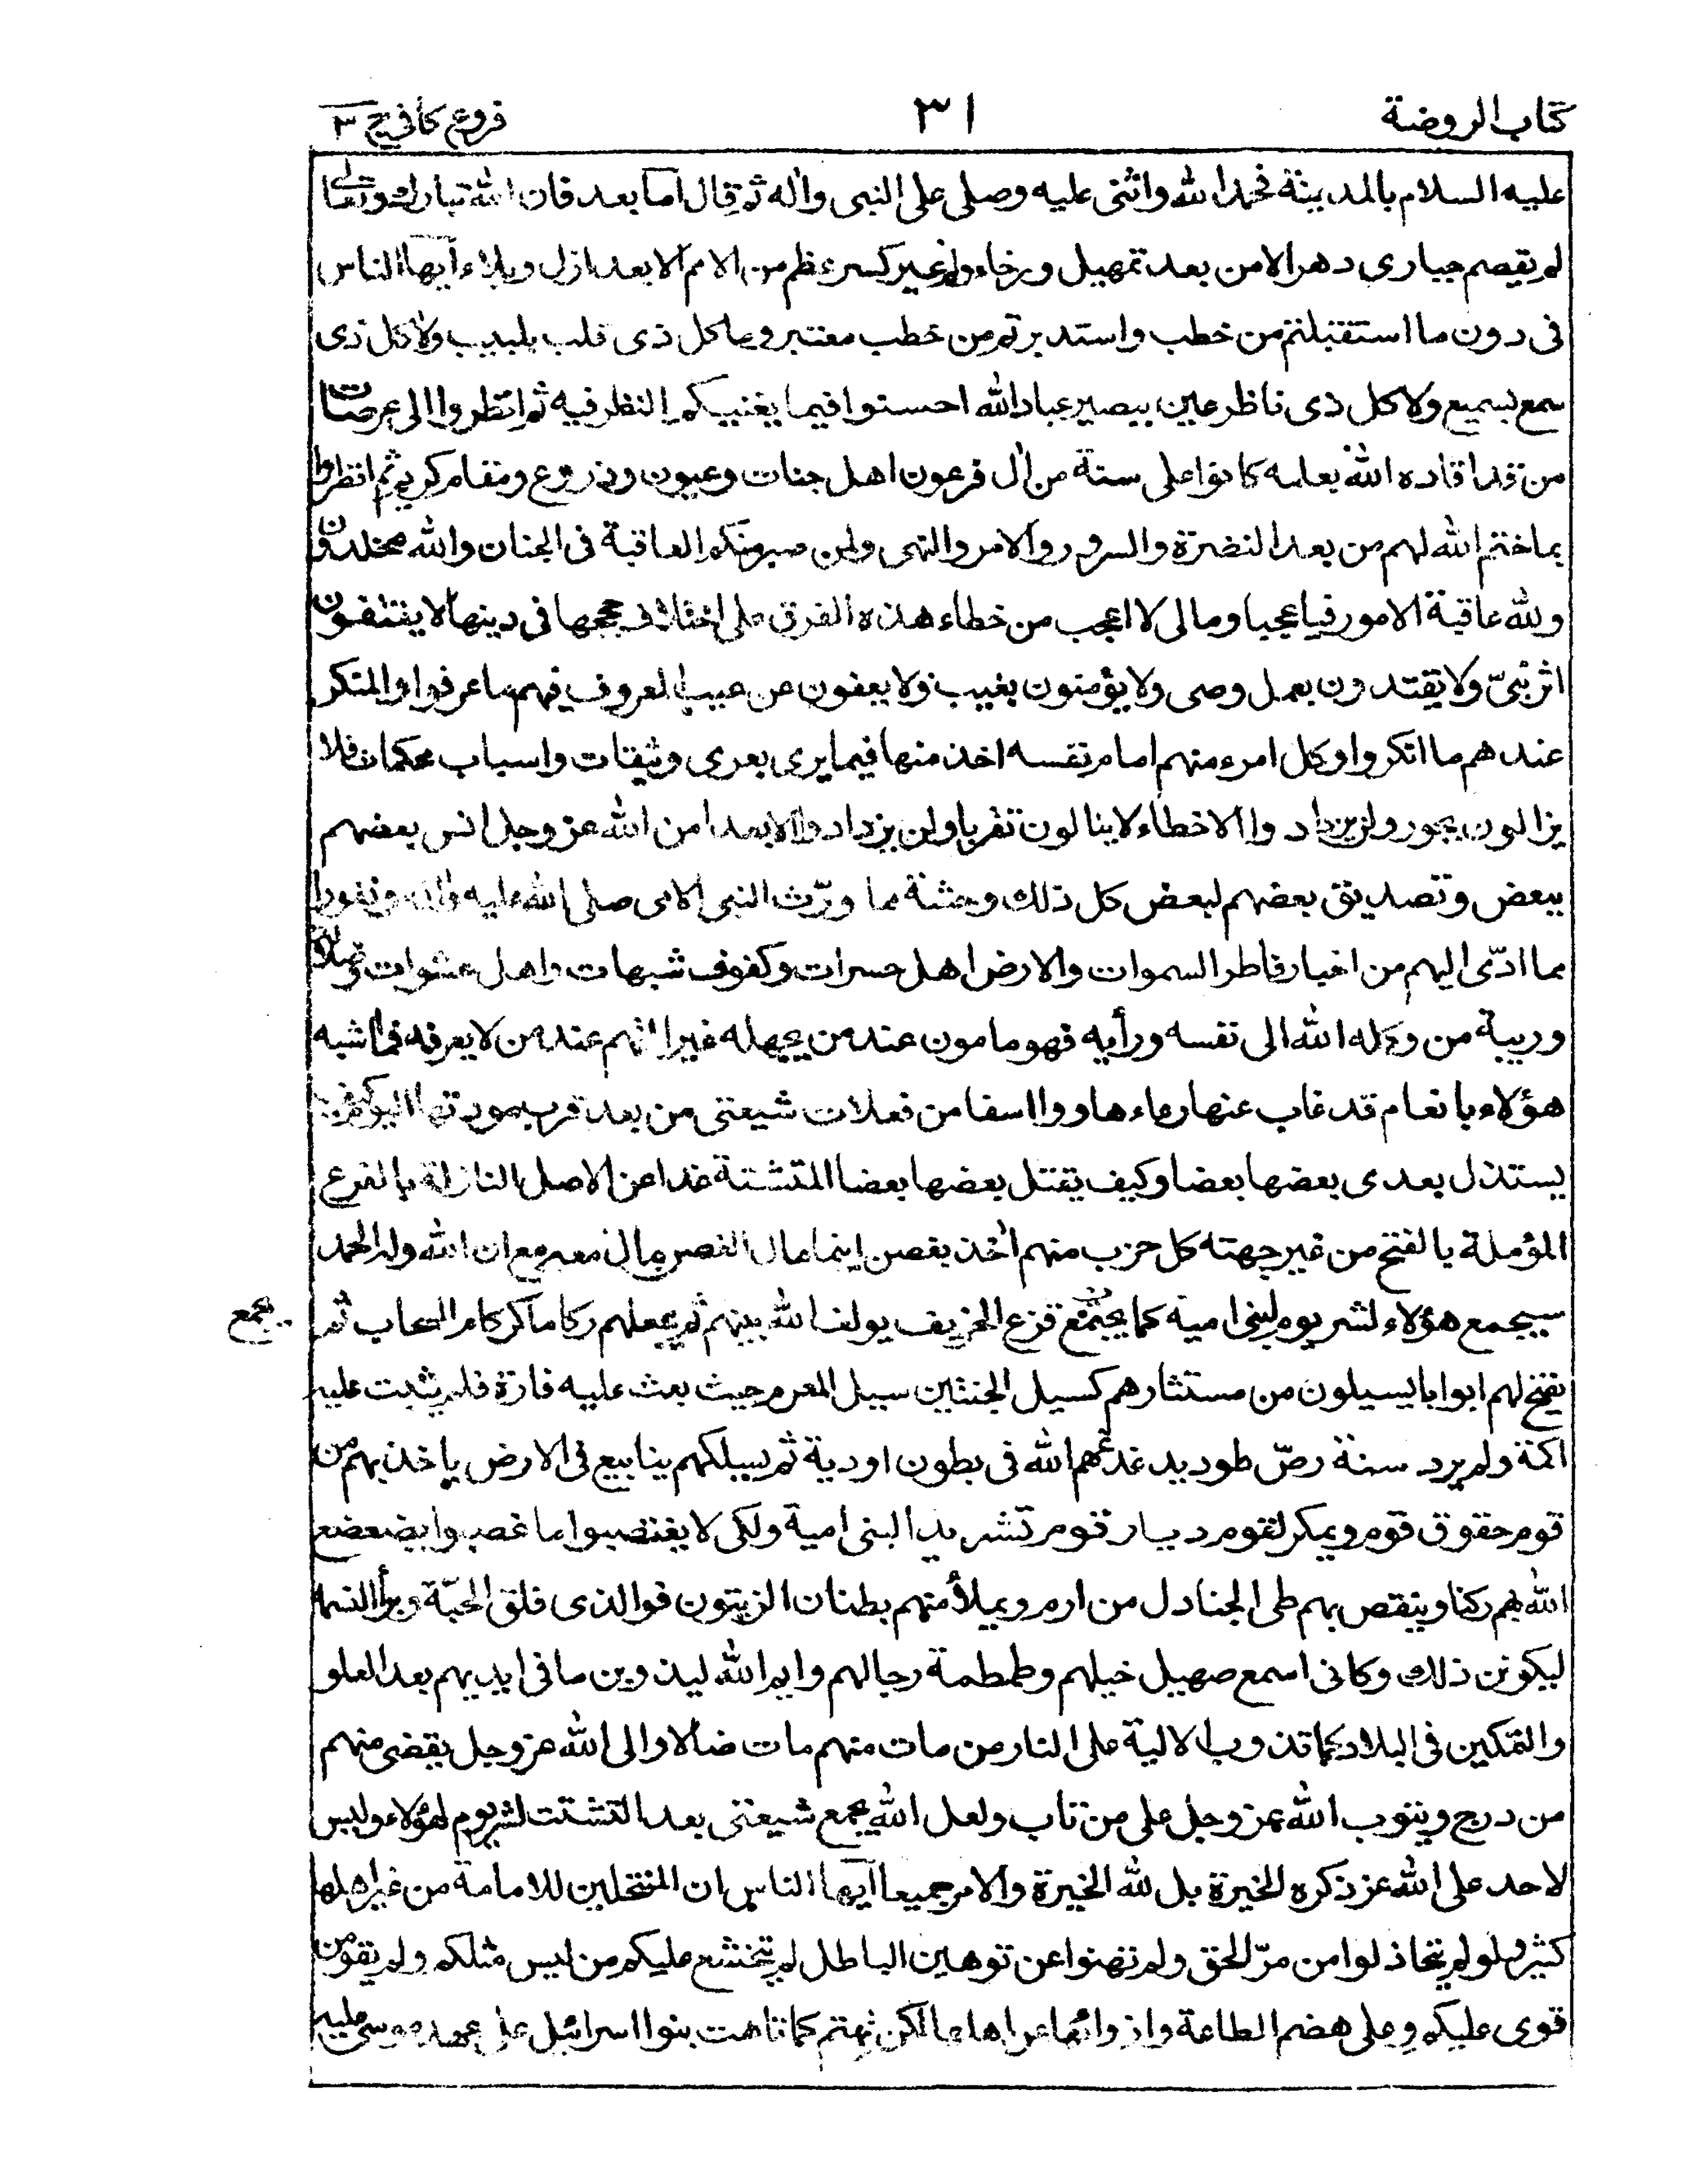 كتاب الروضة
٣١
فروع كافى ج ٣
عليه السلام بالمدينة فحمد الله واثنى عليه وصلى على النبى واله ثم قال اما بعد فان الله تبارك وتعالى
لم يقصم جبارى دهر الا من بعد تمهيل ورخاء ولم يجبر كسر عظم من الامم الا بعد ازل وبلاء ايها الناس
فى دون ما استقبلتم من خطب واستدبرتم من خطب معتبر وما كل ذى قلب بلبيب ولا كل ذى
سمع بسميع ولا كل ذى ناظر عين ببصير عباد الله احسنوا فيما يعنيكم النظر فيه ثم انظروا الى عرصات
من قد اقاده الله بعلمه كانوا على سنة من ال فرعون اهل جنات وعيون وزروع ومقام كريم ثم انظروا
بما ختم الله لهم من بعد النضرة والسرور والامر والنهى ولمن صبر منكم العاقبة فى الجنان والله مخلدون
ولله عاقبة الامور فيا عجبا ومالى لا اعجب من خطاء هذه الفرق على اختلاف حججها فى دينها لا يقتفون
اثر نبىّ ولا يقتدون بعمل وصى ولا يؤمنون بغيب ولا يعفون عن عيب المعروف فيهم ما عرفوا والمنكر
عندهم ما انكروا وكل امرء منهم امام نفسه اخذ منها فيما يرى بعرى وثيقات واسباب محكمات فلا
يزالون بجور ولن يزدادوا الا خطاء لا ينالون تقربا ولن يزدادوا الا بعدا من الله عز وجل انس بعضهم
ببعض وتصديق بعضهم لبعض كل ذلك وحشة مما ورّث النبى الامى صلى الله عليه واله ونفورا
مما ادّى اليهم من اخبار فاطر السموات والارض اهل حسرات وكفوف شبهات واهل عشوات وضلالة
وريبة من وكله الله الى نفسه ورأيه فهو مامون عند من يجهله غير المتهم عند من لا يعرفه فما اشبه
هؤلاء بانعام قد غاب عنها رعاءها ووا اسفا من فعلات شيعتى من بعد قرب مودتها اليوم كيف
يستذل بعدى بعضها بعضا وكيف يقتل بعضها بعضا المتشتتة غدا عن الاصل النازلة بالفرع
المؤملة بالفتح من غير جهته كل حزب منهم اخذ بغصن اينما مال الغصن مال معه مع ان الله وله الحمد
سيجمع هؤلاء لشر يوم لبنى امية كما يجتمع قزع الخريف يولف الله بينهم ثم يجعلهم ركاما كركام السحاب ثم
يجمع
يفتح لهم ابوابا يسيلون من مستثارهم كسيل الجنتين سيل العرم حيث بعث عليه فارة فلم يثبت عليه
اكمة ولم يرد سننه رصّ طود يدغدغهم الله فى بطون اودية ثم يسلكهم ينابيع فى الارض ياخذ بهم من
قوم حقوق قوم ويمكن لقوم ديار قوم تشريدا لبنى امية ولكى لا يغتصبوا ما غصبوا يضعضع
الله بهم ركنا وينقض بهم طى الجنادل من ارم ويملأ منهم بطنان الزيتون فوالذى فلق الحبّة وبرأ النسمة
ليكونن ذلك وكانى اسمع صهيل خيلهم وطمطمة رجالهم وايم الله ليذوبن ما فى ايديهم بعد العلو
والتمكين فى البلاد كما تذوب الالية على النار من مات منهم مات ضالا والى الله عز وجل يفضى منهم
من درج ويتوب الله عز وجل على من تاب ولعل الله يجمع شيعتى بعد التشتت لشر يوم لهؤلاء وليس
لاحد على الله عز ذكره الخيرة بل لله الخيرة والامر جميعا ايها الناس ان المنتحلين للامامة من غير اهلها
كثير ولو لم تتخاذلوا من مرّ الحق ولم تهنوا عن توهين الباطل لم يتخشع عليكم من ليس مثلكم ولم يقو من
قوى عليكم وعلى هضم الطاعة وازوائها عن اهلها لكن تهتم كما تاهت بنوا اسرائيل على عهد موسى عليه